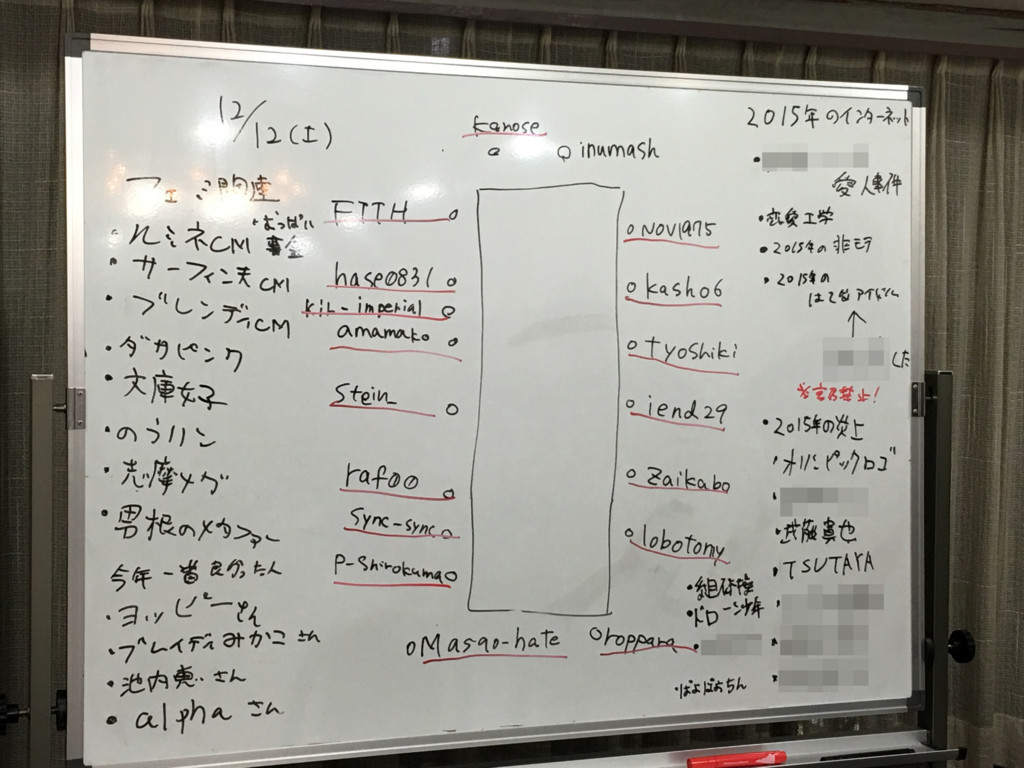 12/12(土)
フェミ関連
・ルミネCM
・おっぱい募金
・サーフィン夫CM
・ブレンディCM
・ダカピンク
・文庫女子
・のうりん
・志摩メグ
・男根のメタファー
今年一番良かったん
・ヨッピーさん
・ブレイディみかこさん
・池内恵さん
・alphaさん
kanose
inumash
FTTH
hase0831
kil-imperial
amamako
stein_
rafoo
sync-sync
p-shirokuma
NOV1975
kash06
tyoshiki
iend29
zaikabo
lobotomy
Masao-hate
roppara
2015年のインターネット
愛人事件
・恋愛工学
・2015年の非モテ
・2015年の
はてなアイドル
した
※言及禁止!
・2015年の炎上
・オリンピックロゴ
・武藤貴也
・TSUTAYA
・組体操
・ドローン少年
・ぱよぱよちん